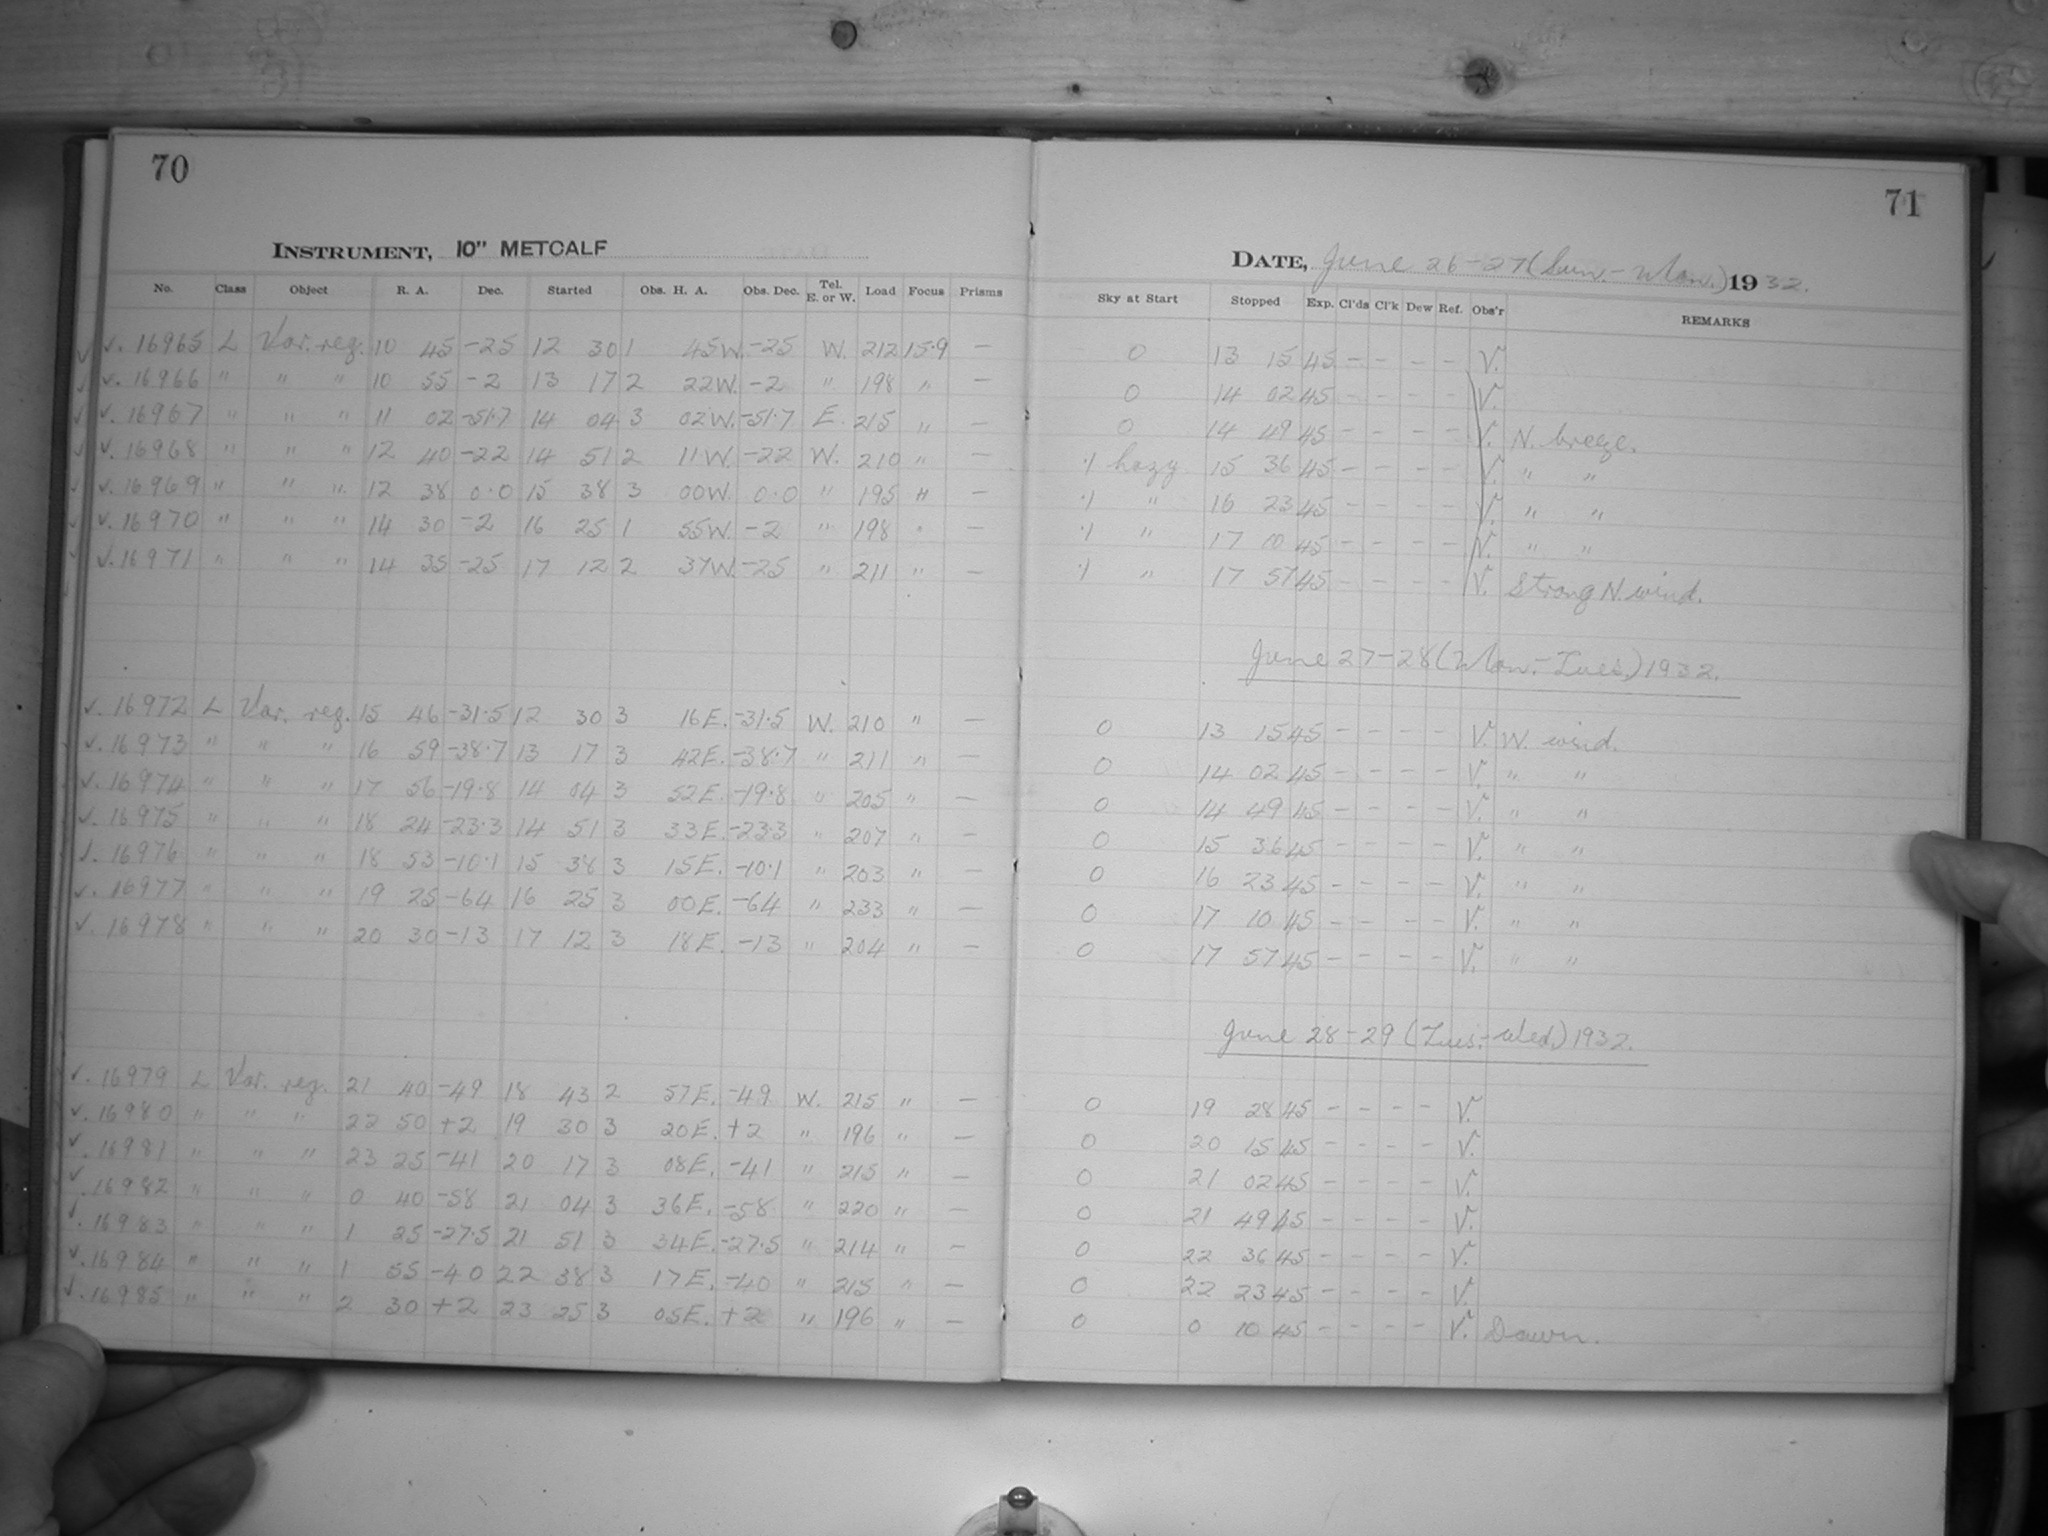 70
INSTRUMENT, 10" METCALF
No. Class Object R. A. Dec. Started Obs. H. A. Obs. Dec. Tel. E. or W. Load Focus Prisms
√. 16965 L Var. reg. 10 45 -25 12 30 1 45W. -25 W. 212 15.9 —
√. 16966 " " " 10 55 -2 13 17 2 22W. -2 " 198 " —
√. 16967 " " " 11 02 -51.7 14 04 3 02W. -51.7 E. 215 " —
√. 16968 " " " 12 40 -22 14 51 2 11W. -22 W. 210 " —
√. 16969 " " " 12 38 0.0 15 38 3 00W. 0.0 " 195 " —
√. 16970 " " " 14 30 -2 16 25 1 55W. -2 " 198 " —
√. 16971 " " " 14 35 -25 17 12 2 37W. -25 " 211 " —
√. 16972 L Var. reg. 15 46 -31.5 12 30 3 16E. -31.5 W. 210 " —
√. 16973 " " " 16 59 -38.7 13 17 3 42E. -38.7 " 211 " —
√. 16974 " " " 17 56 -19.8 14 04 3 52E. -19.8 " 205 " —
√. 16975 " " " 18 24 -23.3 14 51 3 33E. -23.3 " 207 " —
√. 16976 " " " 18 53 -10.1 15 38 3 15E. -10.1 " 203 " —
√. 16977 " " " 19 25 -64 16 25 3 00E. -64 " 233 " —
√. 16978 " " " 20 30 -13 17 12 3 18E. -13 " 204 " —
√. 16979 L Var. reg. 21 40 -49 18 43 2 57E. -49 W. 215 " —
√. 16980 " " " 22 50 +2 19 30 3 20E. +2 " 196 " —
√. 16981 " " " 23 25 -41 20 17 3 08E. -41 " 215 " —
√. 16982 " " " 0 40 -58 21 04 3 36E. -58 " 220 " —
√. 16983 " " " 1 25 -27.5 21 51 3 34E. -27.5 " 214 " —
√. 16984 " " " 1 55 -40 22 38 3 17E. -40 " 215 " —
√. 16985 " " " 2 30 +2 23 25 3 05E. +2 " 196 " —
71
DATE, June 26-27 (Sun.-Mon.) 1932.
Sky at Start Stopped Exp. Cl'ds Cl'k Dew Ref. Obs'r REMARKS
0 13 15 45 - - - - V.
0 14 02 45 - - - - V.
0 14 49 45 - - - - V. N. breeze.
.1 hazy 15 36 45 - - - - V. " "
.1 " 16 23 45 - - - - V. " "
.1 " 17 10 45 - - - - V. " "
.1 " 17 57 45 - - - - V. Strong N. wind.
June 27-28 (Mon.-Tues.) 1932.
0 13 15 45 - - - - V. W. wind.
0 14 02 45 - - - - V. " "
0 14 49 45 - - - - V. " "
0 15 36 45 - - - - V. " "
0 16 23 45 - - - - V. " "
0 17 10 45 - - - - V. " "
0 17 57 45 - - - - V. " "
June 28-29 (Tues.-Wed.) 1932.
0 19 28 45 - - - - V.
0 20 15 45 - - - - V.
0 21 02 45 - - - - V.
0 21 49 45 - - - - V.
0 22 36 45 - - - - V.
0 22 23 45 - - - - V.
0 0 10 45 - - - - V. Dawn.